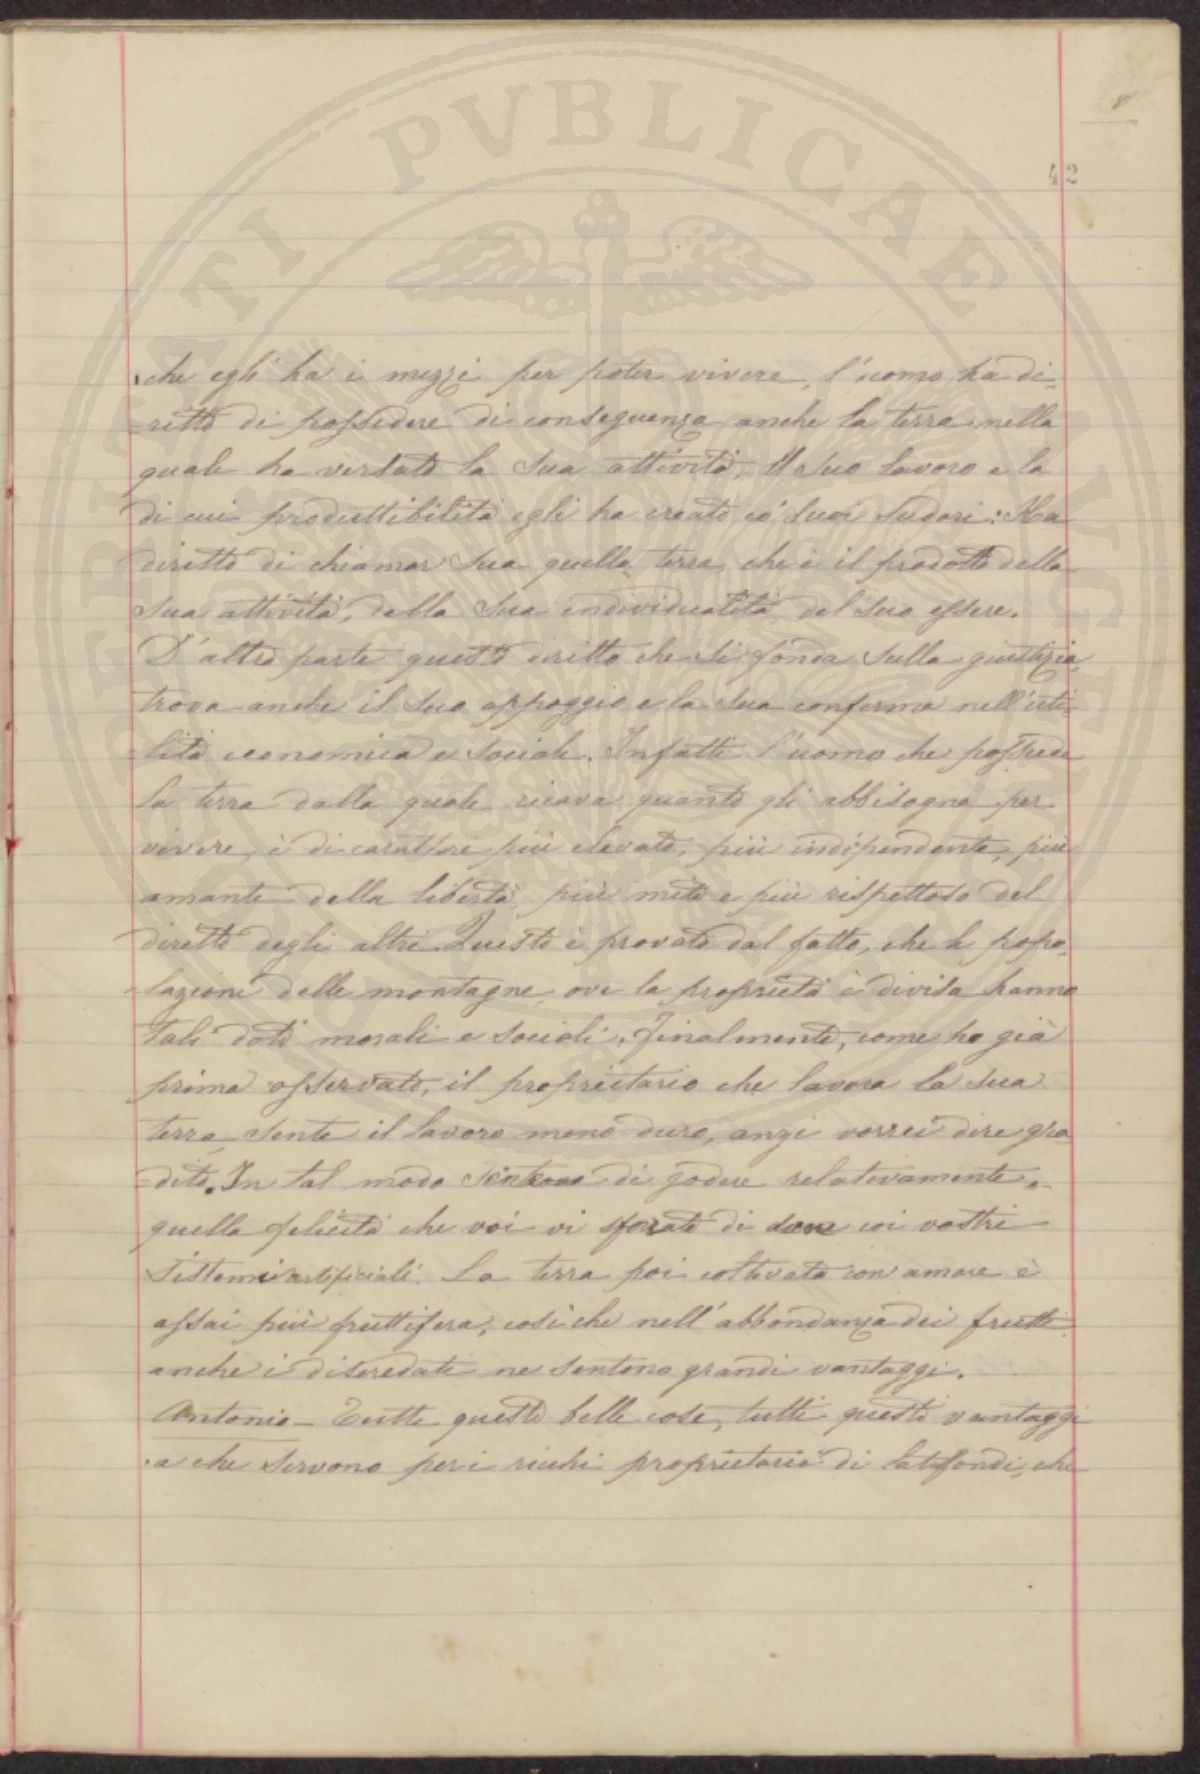 8
42
che egli ha i mezzi per poter vivere, l'uomo ha di=
ritto di possedere di conseguenza anche la terra nella
quale ha versato la sua attività, il suo lavoro e la
di cui produttibilità egli ha creato co' suoi sudori: Ha
diritto di chiamar sua quella terra, che è il prodotto della
sua attività, della sua individualità, del suo essere.
D'altra parte questo diritto che si fonda sulla giustizia,
trova anche il suo appoggio e la sua conferma nell'uti-
lità economica e sociale. Infatti l'uomo che possiede
la terra dalla quale ricava quanto gli abbisogna per
vivere, è di carattere più elevato, più indipendente, più
amante della libertà, più mite e più rispettoso del
diritto degli altri. Questo è provato dal fatto, che le popo-
lazioni delle montagne, ove la proprietà è divisa hanno
tali doti morali e sociali. Finalmente, come ho già
prima osservato, il proprietario che lavora la sua
terra sente il lavoro meno duro, anzi vorrei dire gra
dito. In tal modo di godere relativamente
quella felicità che voi vi sforzate di dare coi vostri
sistemi artificiali. La terra poi coltivata con amore è
assai più fruttifera, così che nell'abbondanza dei frutti
anche i diseredati ne sentono grandi vantaggi.
Antonio – Tutte queste belle cose, tutti questi vantaggi
a che servono per i ricchi proprietarii di latifondi, che
PVBLICAE